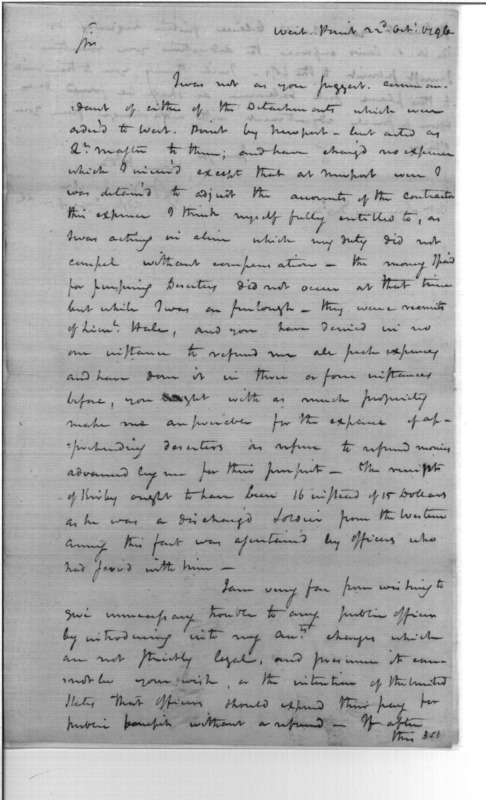 West Point 22d. Octr. 1796
Sir
I was not as you suggest comman-
-dant of either of the Detachments which were
order'd to West Point by Newport - but acted as
Qr. master to them; and have charg'd no expence
which I incur'd except that at Newport were I
was detain'd to adjust the accounts of the contractor
this expence I think myself fully entitled to, as
I was acting in a line which my duty did not
compel without compensation - the money I paid
for pursuing Deserters did not occur at that time
but while I was on furlough - they were recruits
of Lieut. Hale, and you have denied in no
one instance to refund me all such expences
and have done it in three or four instances
before, you might with as much propriety
make me answerable for the expence of ap-
-prehending deserters as refuse to refund monies
advanced by me for their pursuit - The receipt
of Kirby ought to have been 16 instead of 15 Dollars
as he was a discharg'd Soldier from the Western
Army this fact was ascertain'd by officers who
had serv'd with him -
I am very far from wishing to
give unnecessary trouble to any public officer
by introducing into my acts. charges which
are not strictly legal, and presume it can-
-not be your wish, or the intention of the United
States that officers should expend their pay for
public benefit without a refund - If after
this 351